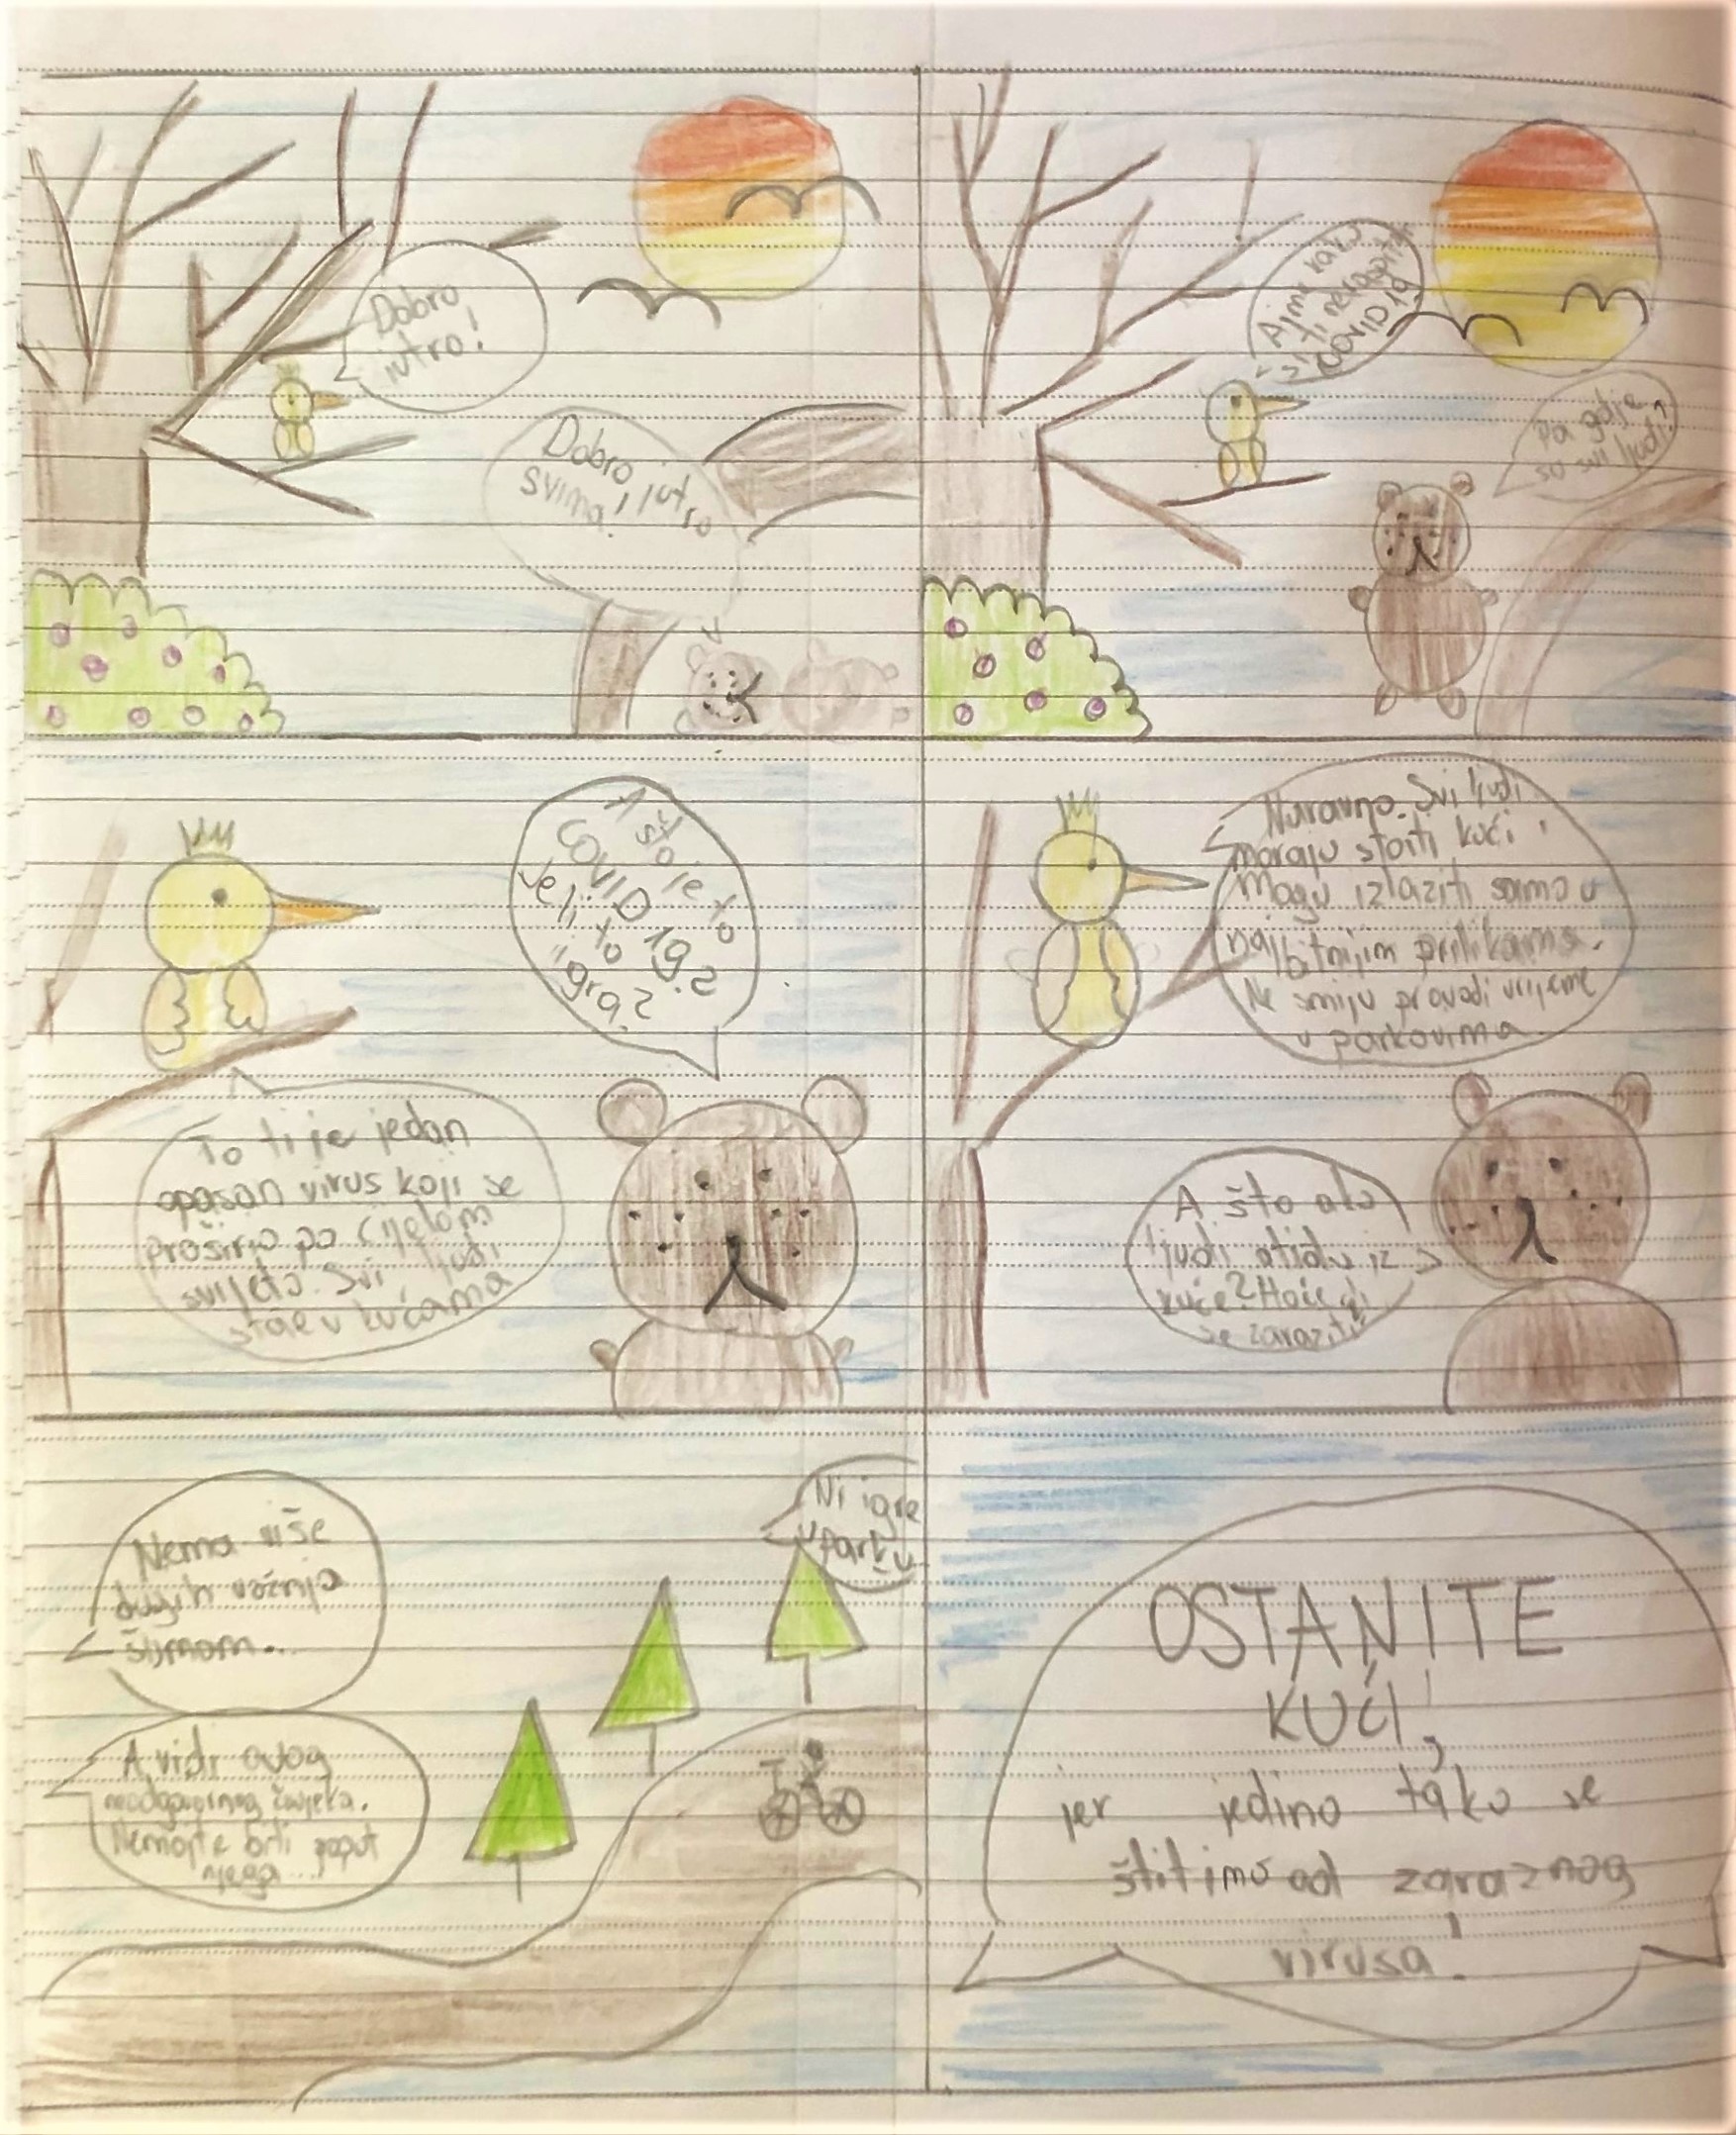 Dobro
jutro!
Dobro jutro
svima!
Ajme kako
si ti
COVID 19?
Pa gdje
su svi ljudi?
A što je to
COVID 19?
Je li to
igra?
To ti je jedan
opasan virus koji se
proširio po cijelom
svijetu. Svi ljudi
stoje u kućama
Naravno. Svi ljudi
moraju stoiti kući i
mogu izlaziti samo u
najbitnijim prilikama.
Ne smiju provodi vrijeme
u parkovima
A što ako
ljudi otidu iz
kuće? Hoće li
se zaraziti?
Nema više
dugih vožnja
šumom...
Ni igre
u parku
A vidi ovog
neodgovornog čovjeka.
Nemojte biti poput
njega...
OSTANITE
KUĆI,
jer jedino tako se
štitimo od zaraznog
virusa!